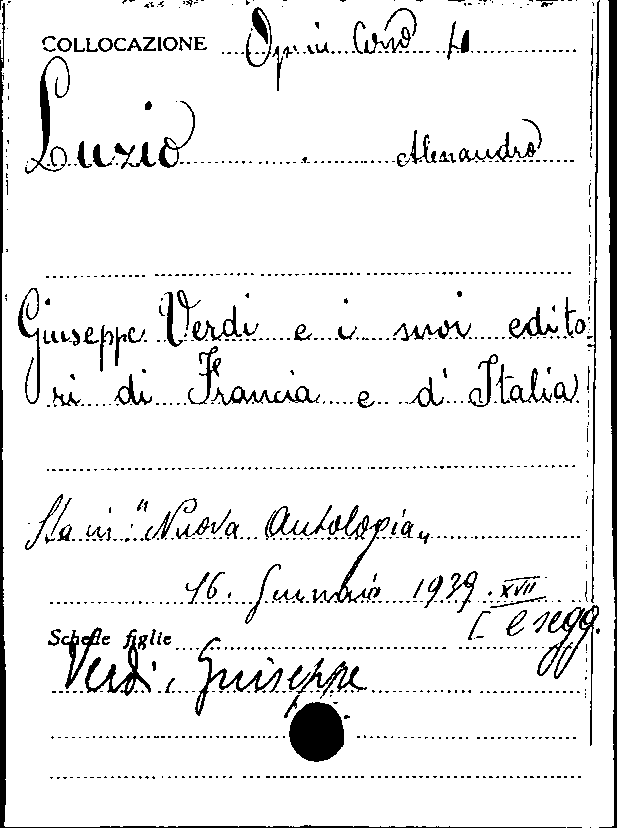 COLLOCAZIONE Opuin Corso 4
Luzio Alessandro
Giuseppe Verdi e i suoi edito
ri di Francia e d'Italia
Sta in: "Nuova Antologia„
16. Gennaio 1939. XVII
[ e segg.
Schede figlie
Verdi, Giuseppe